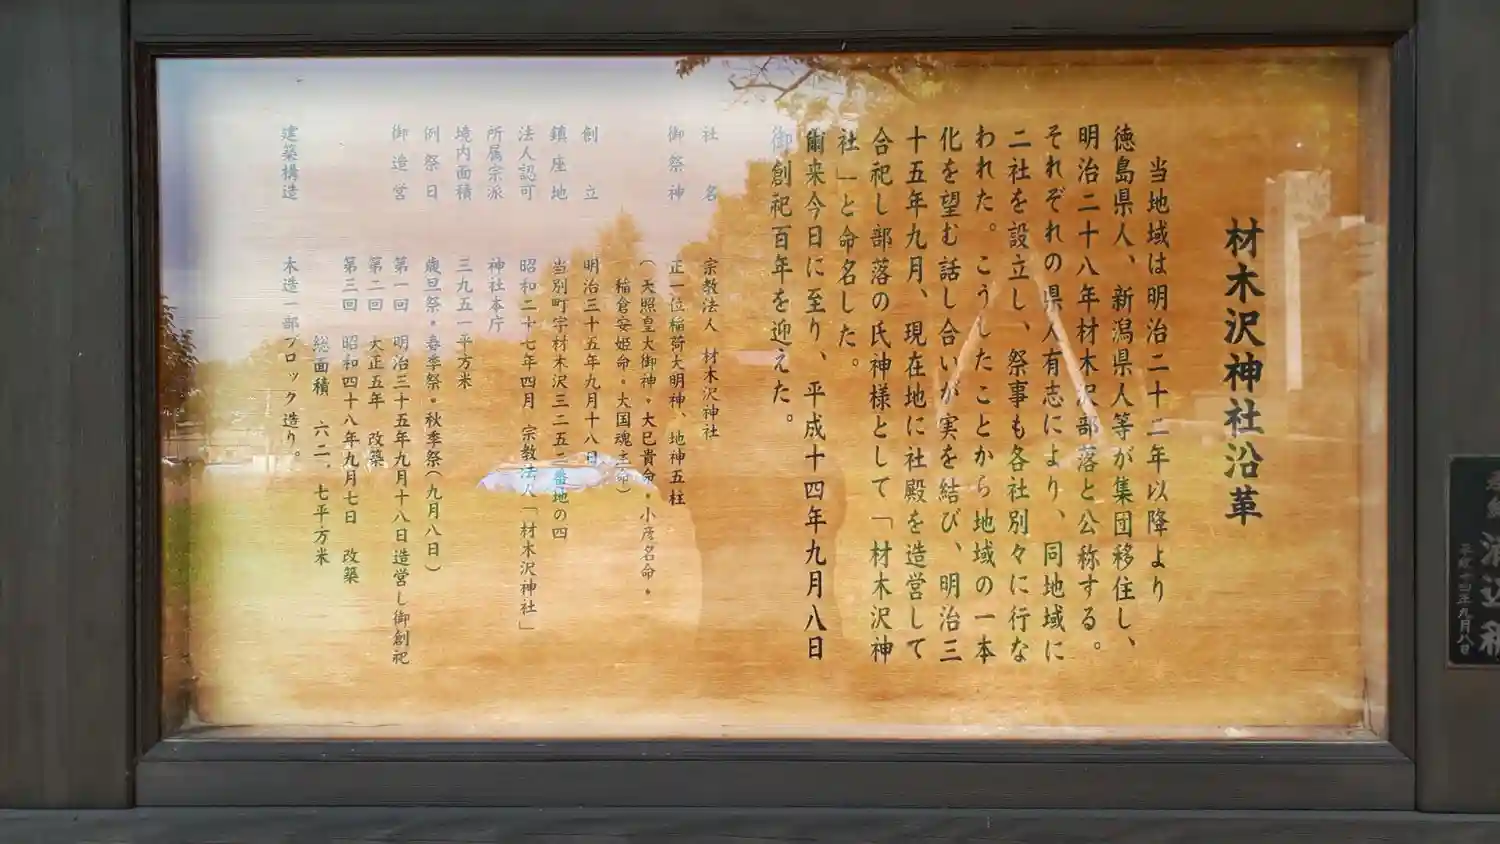 材木沢神社沿革
当地域は明治二十二年以降より
徳島県人、新潟県人等が集団移住し、
明治二十八年材木沢部落と公称する。
それぞれの県人有志により、同地域に
二社を設立し、祭事も各社別々に行な
われた。こうしたことから地域の一本
化を望む話し合いが実を結び、明治三
十五年九月、現在地に社殿を造営して
合祀し部落の氏神様として「材木沢神
社」と命名した。
爾来今日に至り、平成十四年九月八日
御創祀百年を迎えた。
社名 宗教法人 材木沢神社
御祭神 正一位稲荷大明神、地神五柱
(天照皇大御神・大巳貴命・小彦名命・
稲倉安姫命・大国魂主命)
創立 明治三十五年九月十八日
鎮座地 当別町字材木沢三二五二番地の四
法人認可 昭和二十七年四月 宗教法人「材木沢神社」
所属宗派 神社本庁
境内面積 三九五一平方米
例祭日 歳旦祭・春季祭・秋季祭(九月八日)
御造営 第一回 明治三十五年九月十八日造営し御創祀
第二回 大正五年 改築
第三回 昭和四十八年九月七日 改築
総面積 六二、七平方米
建築構造 木造一部ブロック造り。
平成十四年九月八日